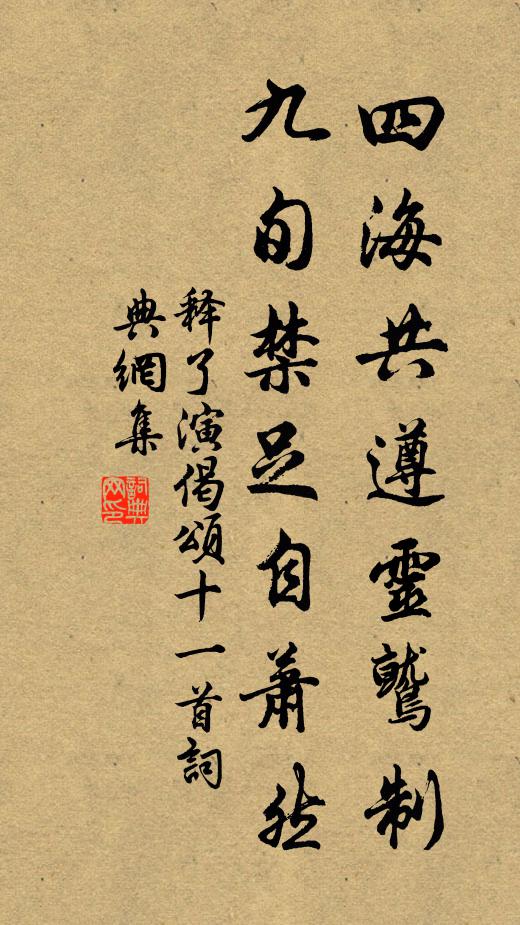 四海共遵靈鷲制
九旬禁足自蕭然
释了演偈頌十一首詞
典網集
詞典网印